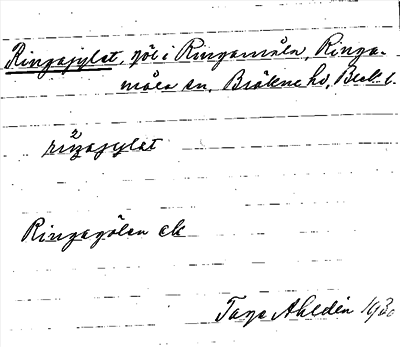 Ringagylet, göl i Ringamåla, Ringa-
måla sn, Bräkne hd, Blek. l.
2
ringagylet
Ringagölen ek
Tage Ahldén 1930